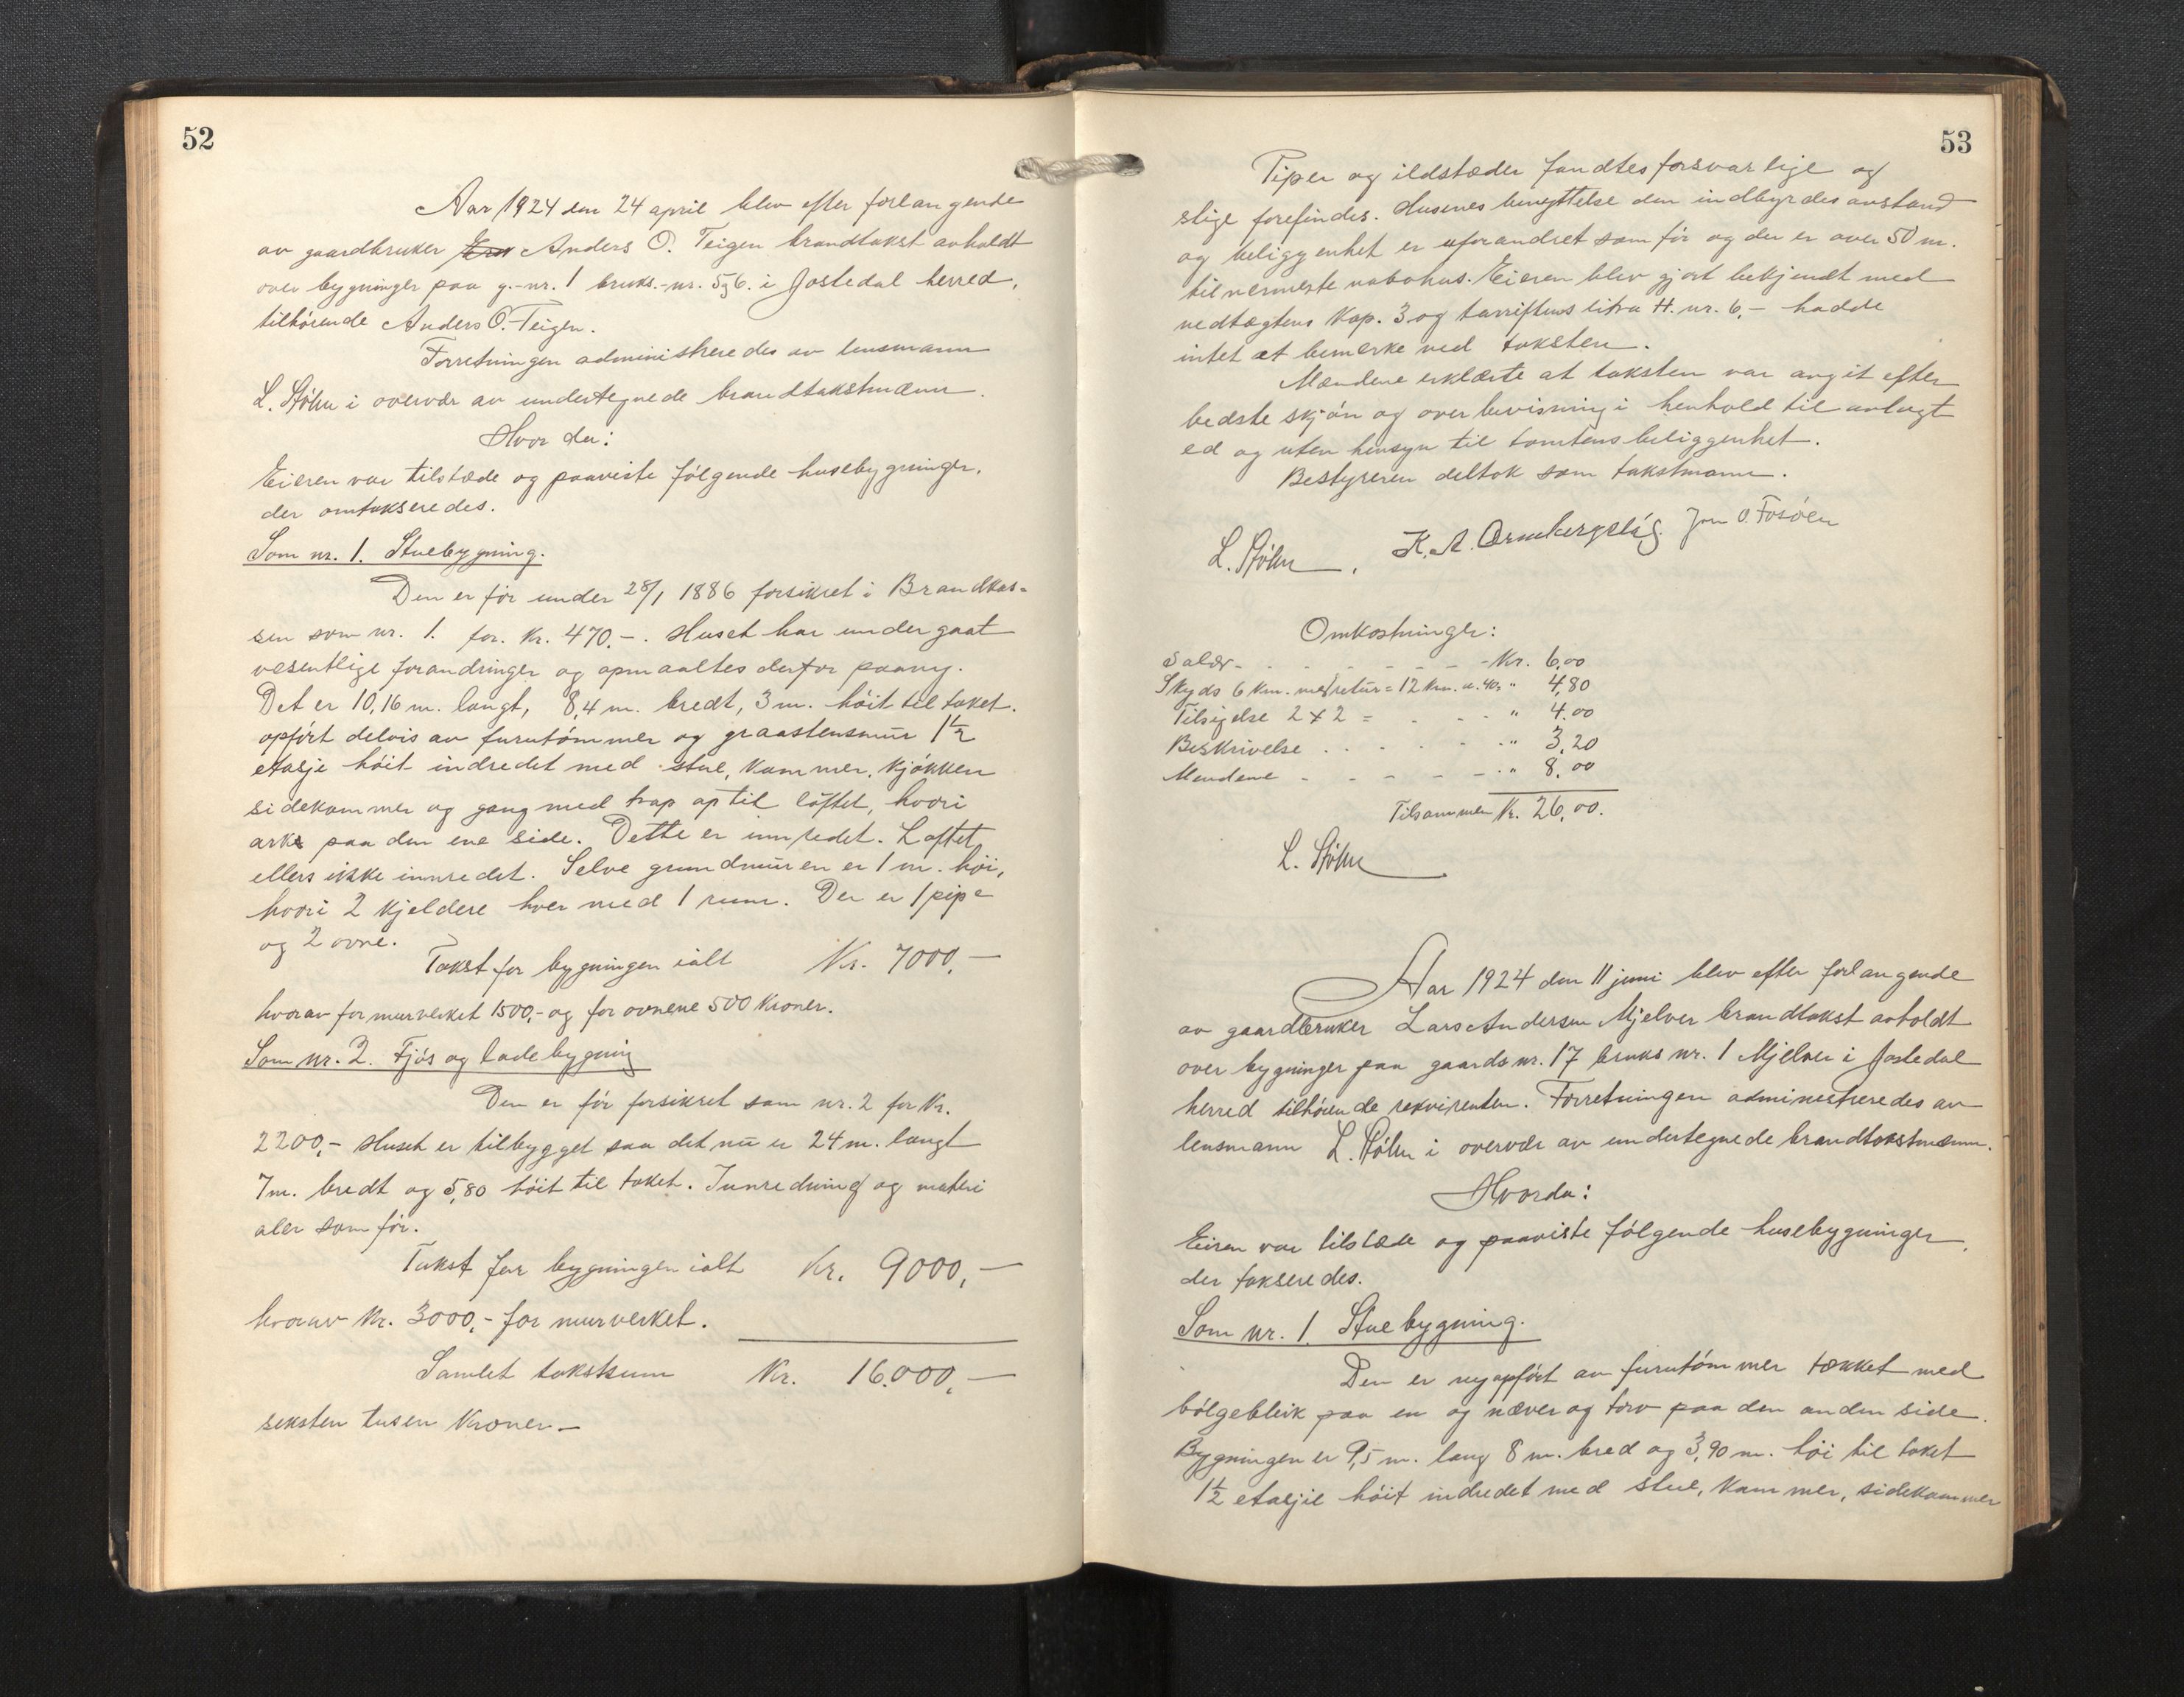 52
Aar 1924 den 24 april blev efter forlangende
av gaardbruker Anders O. Teigen brandtakst avholdt
over bygninger paa g.-nr. 1 bruks.-nr. 5 og 6. i Jostedal herred,
tilhørende Anders O. Teigen.
Forretningen administreredes av lensmann
L. Stølen i overvær av undertegnede brandtakstmænn.
Hvor da:
Eieren var tilstæde og paaviste følgende husebygninger,
der omtakseredes.
Som nr. 1. Stuebygning.
Den er før under 28/1 1886 forsikret i Brandkas-
sen som nr. 1. for. Kr. 470.-. Huset har undergaat
vesentlige forandringer og opmaaltes derfor paany.
Det er 10,16 m. langt, 8,4 m. bredt, 3 m. høit til taket.
opført delvis av furutømmer og graastensmur 1½
etasje høit indredet med stue, kammer, kjøkken
sidekammer og gang med trap op til loftet, hvori
ark paa den ene side. Dette er innredet. Loftet
ellers ikke innredet. Selve grundmuren er 1 m. høi,
hvori 2 kjeldere hver med 1 rum. Der er 1 pipe
og 2 ovne.
Takst for bygningen ialt Kr. 7000,-
hvorav for murverket 1500,- og for ovnene 500 Kroner.
Som nr. 2. Fjøs og ladebygning
Den er før forsikret som nr. 2 for Kr.
2200,- Huset er tilbygget saa det nu er 24 m. langt
7 m. bredt og 5,80 høit til taket. Innredning og materi
aler som før.
Takst for bygningen ialt Kr. 9000,-
hvorav Kr. 3000,- for murverket.
Samlet takstsum Kr. 16.000,-
seksten tusen Kroner.-
53
Piper og ildstæder fandtes forsvarlige og
slige forefindes. Husenes benyttelse den indbyrdes avstand
og beliggenhet er uforandret som før og der er over 50 m.
til nærmeste nabohus. Eieren blev gjort bekjendt med
vedtægtens Kap. 3 og tariffens litra H. nr. 6,- hadde
intet at bemerke ved taksten.
Mændene erklærte at taksten var angit efter
bedste skjøn og overbevisning i henhold til avlagt
ed og uten hensyn til tomtens beliggenhet.
Bestyreren deltok som takstmann.
L. Stølen. K. A. Ormbergstøl. Jon O. Fosøen
Omkostninger:
Salær - - - - - - - Kr. 6,00
Skyds 6 km. med retur = 12 km. a. 40, " 4,80
Tilsigelse 2 x 2 = - - - " 4.00
Beskrivelse . . . . - - " 3,20
Mændene - - - - - " 8,00
Tilsammen Kr. 26,00.
L. Stølen
Aar 1924 den 11 juni blev efter forlangende
av gaardbruker Lars Andersen Mjelver brandtakst avholdt
over bygninger paa gaards nr. 17 bruks nr. 1 Mjelver i Jostedal
herred tilhørende rekvirenten. Forretningen administreredes av
lensmann L. Stølen i overvær av undertegnede brandtakstmænn.
Hvorda:
Eieren var tilstæde og paaviste følgende husebygninger,
der takseredes.
Som nr. 1. Stuebygning.
Den er nyopført av furutømmer tækket med
bølgeblik paa en og næver og torv paa den anden side.
Bygningen er 9,5 m. lang 8 m. bred og 3,90 m. høi til taket
1½ etasjie høit indredet med stue, kammer, sidekammer